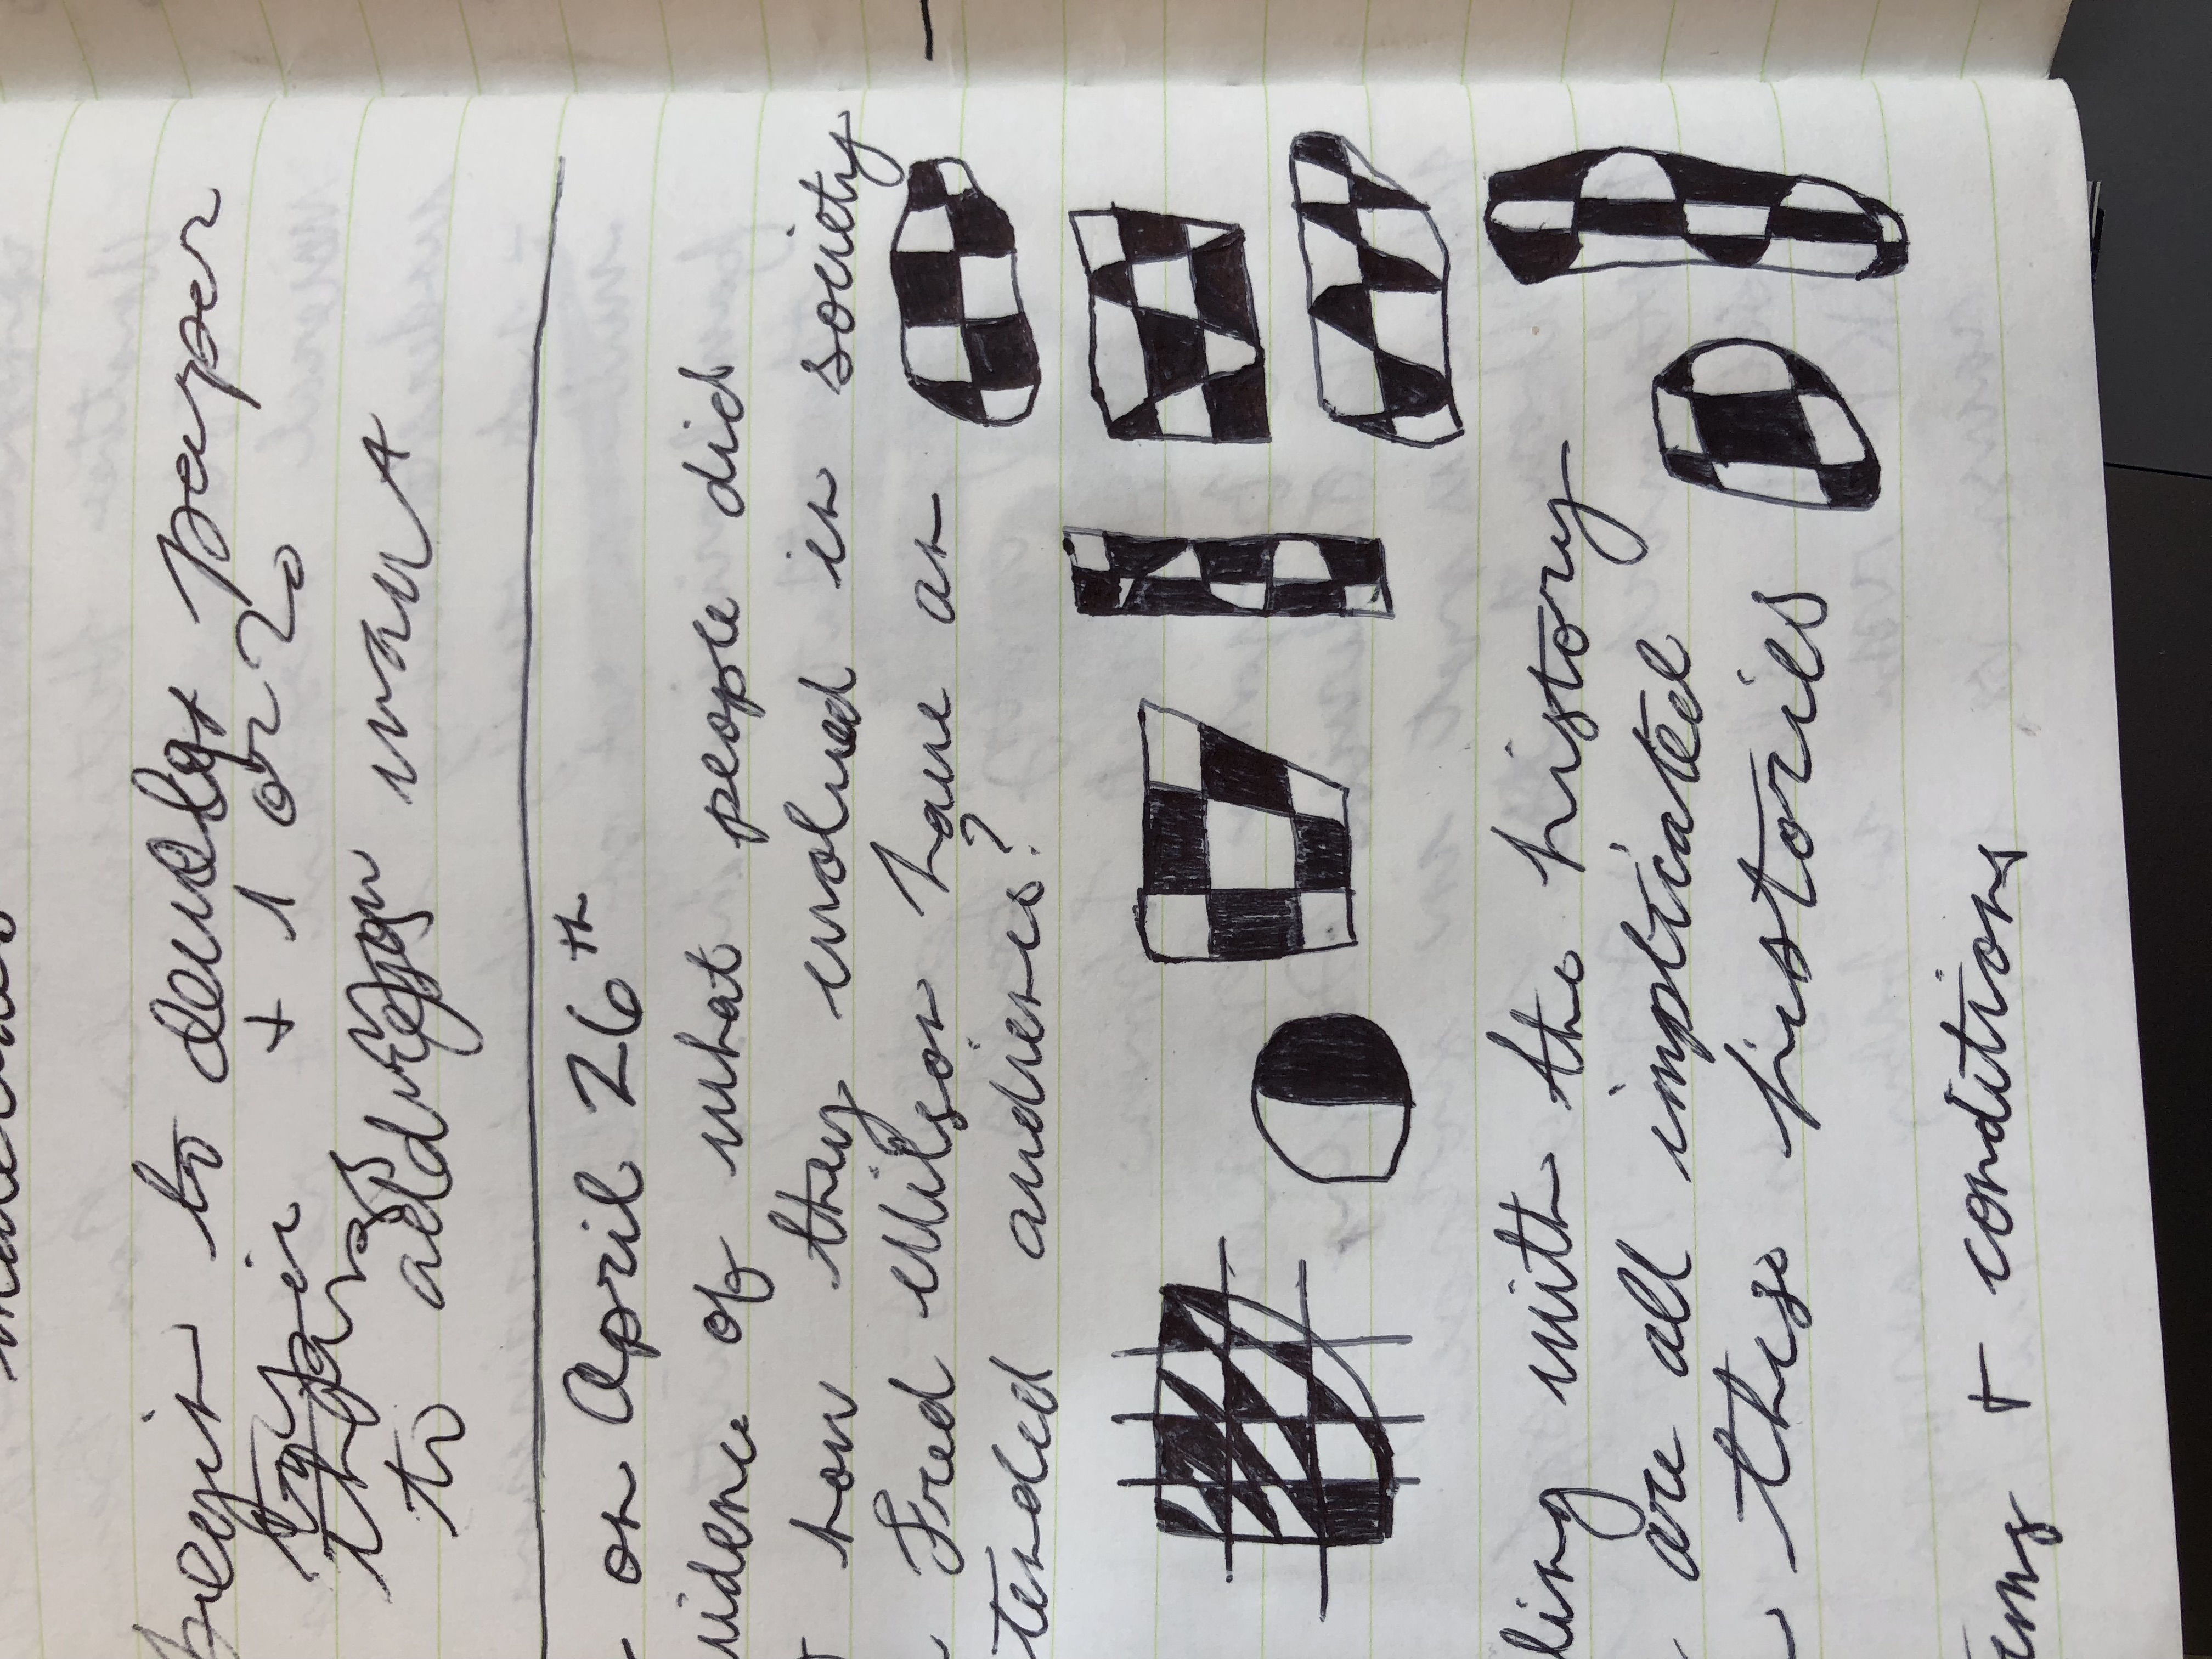 begin to develop paper
their + 1 or 2
to add may want
on April 26th
idence of what people did
how they evolved in society
Fred Wilson have an
tended audience?
ling with the history
are all implicated
these histories
ims + conditions